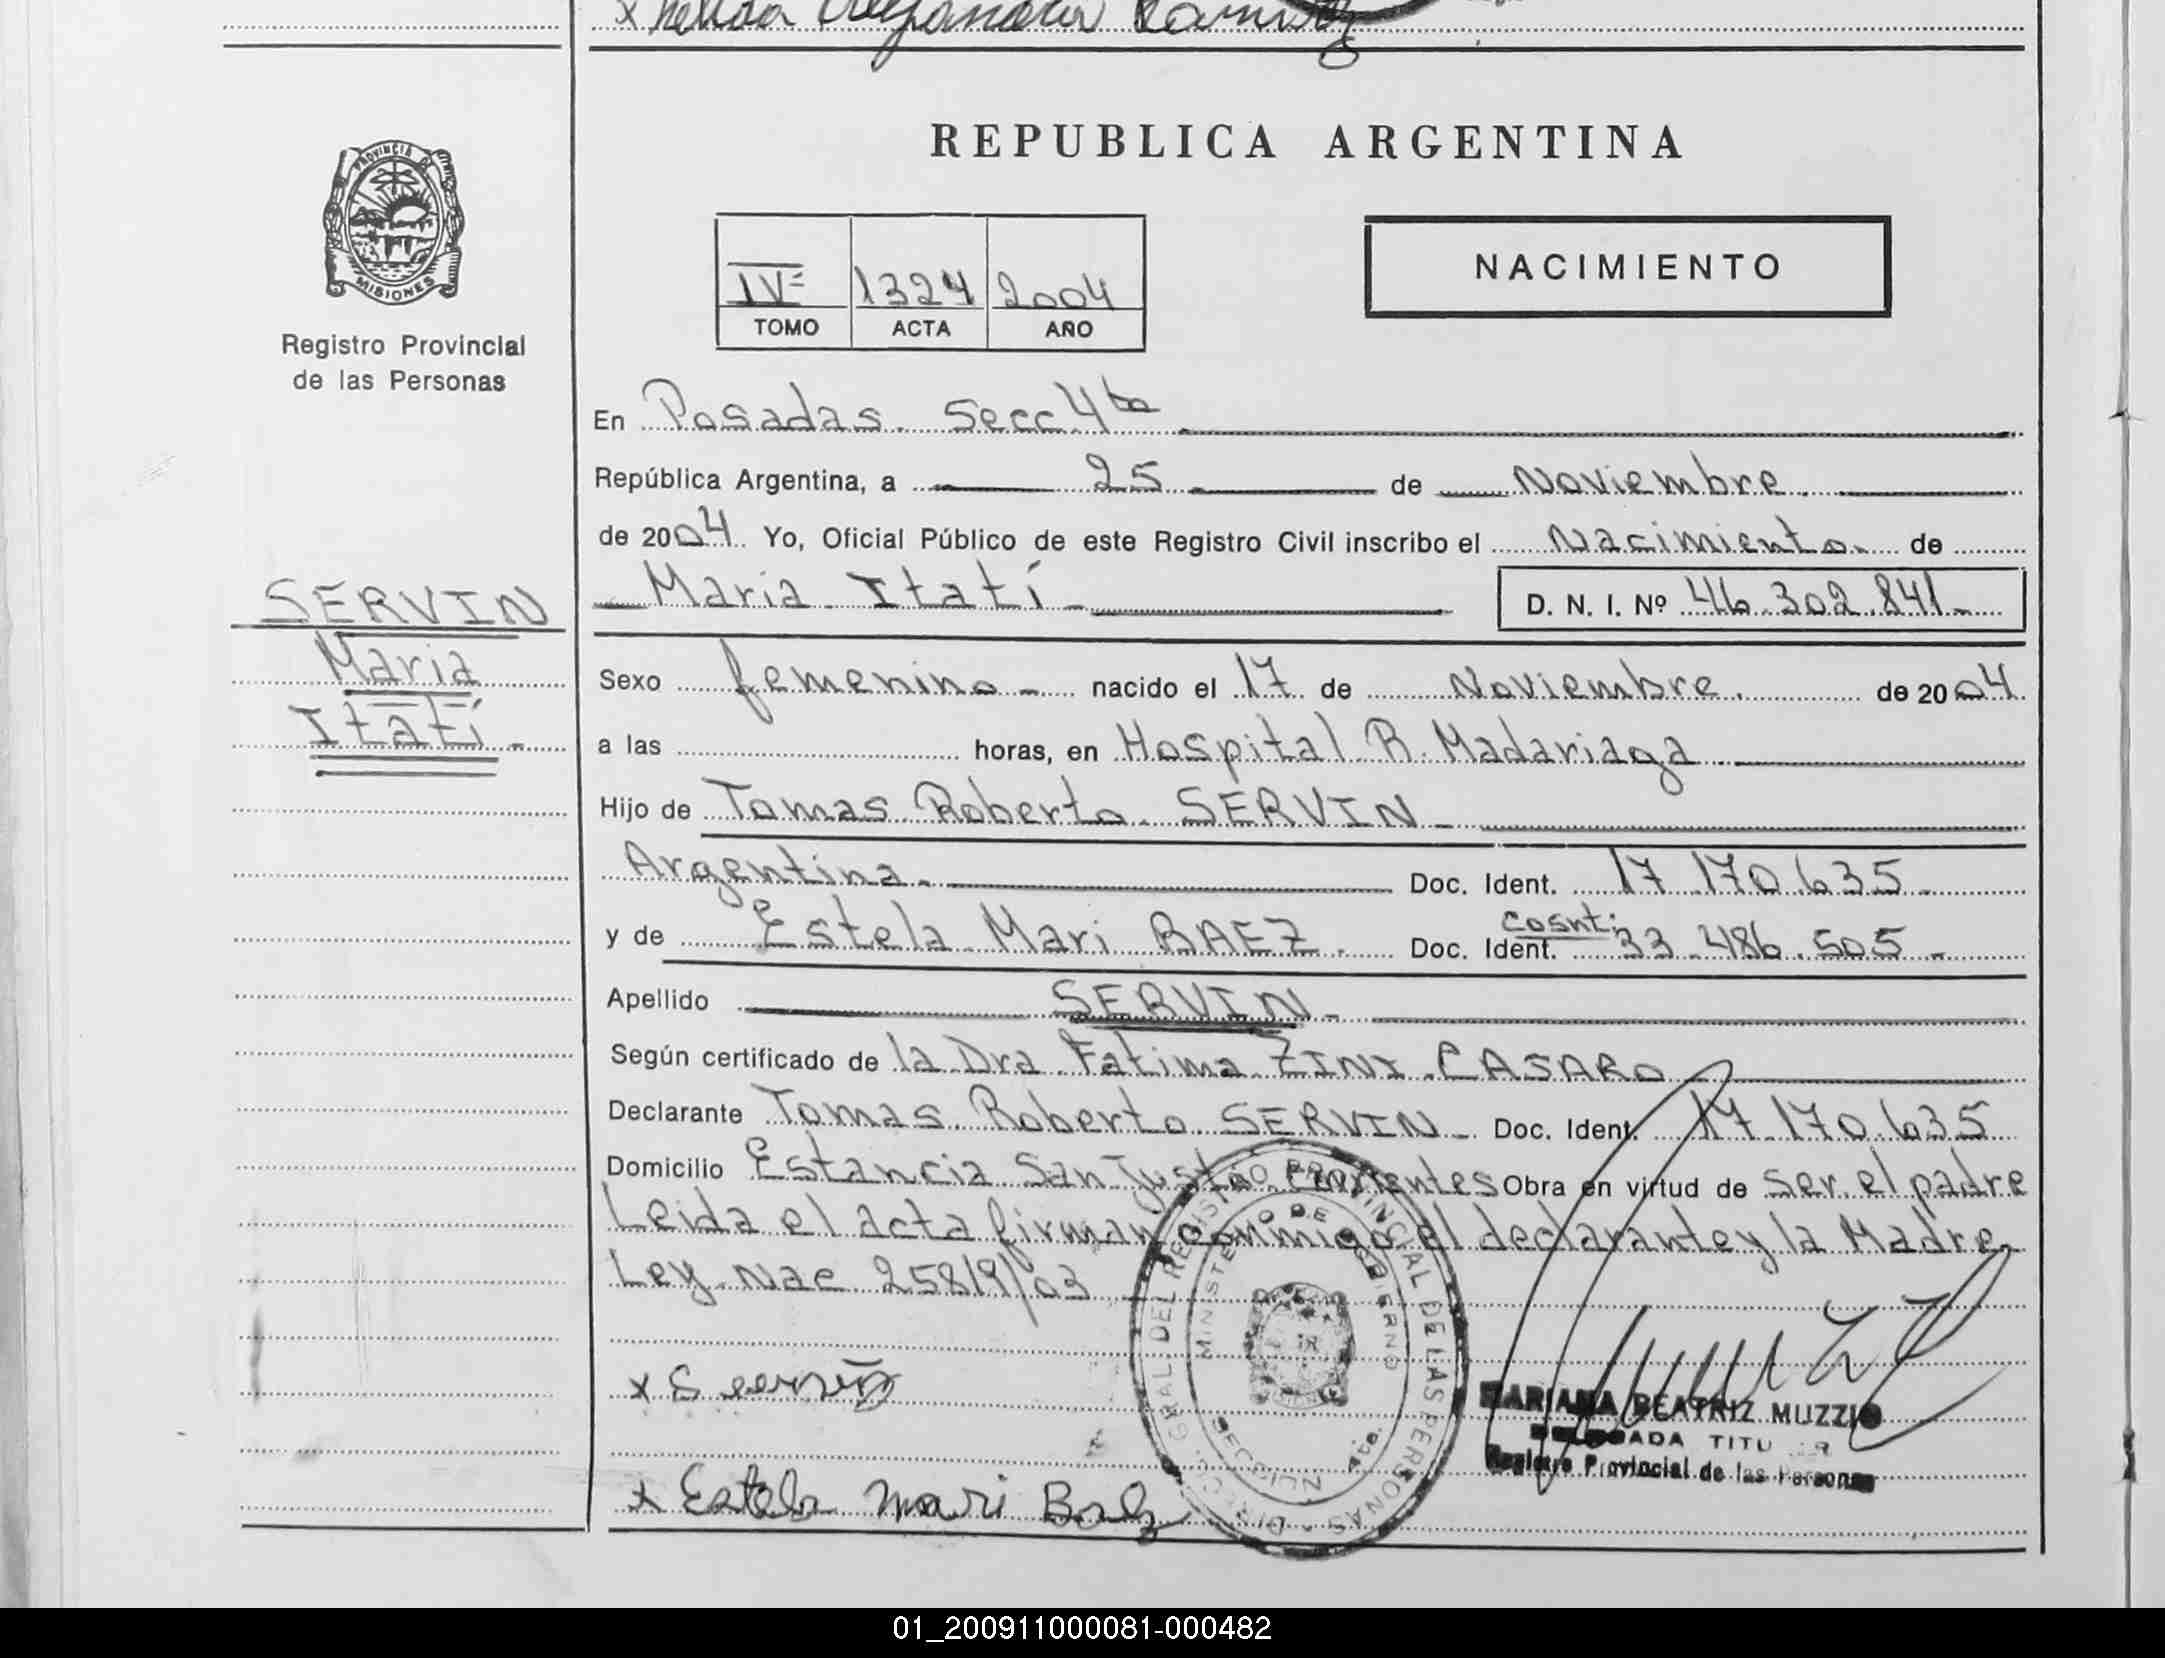 x Nelida Alejandra Ramirez
PROVINCIA DE
MISIONES
Registro Provincial
de las Personas
REPUBLICA ARGENTINA
IVº 1324 2004
TOMO ACTA AÑO
NACIMIENTO
En Posadas. Secc 4ta
República Argentina, a 25 de Noviembre.
de 2004. Yo, Oficial Público de este Registro Civil inscribo el Nacimiento. de
Maria Itatí
D. N. I. Nº 46.302.841-
SERVIN
Maria
Itatí.-
Sexo femenino- nacido el 17 de Noviembre. de 2004.
a las horas, en Hospital R. Madariaga
Hijo de Tomas Roberto SERVIN-
Argentina. Doc. Ident. 17.170.635-
y de Estela Mari BAEZ. Doc. Ident. Cosnt: 33.486.505-
Apellido SERVIN-
Según certificado de la Dra Fatima ZINI CASARO
Declarante Tomas Roberto SERVIN- Doc. Ident. 17.170.635
Domicilio Estancia San Justo Corrientes Obra en virtud de ser el padre
Leida el acta firman conmigo el declarante y la Madre
Ley Nac 25819/03
x Servin
x Estela Mari Baez
DIREC. GRAL DEL REGISTRO PROVINCIAL DE LAS PERSONAS
MINISTERIO DE GOBIERNO
SECCION 4ta.
MARIANA BEATRIZ MUZZIO
DELEGADA TITULAR
Registro Provincial de las Personas
01_200911000081-000482